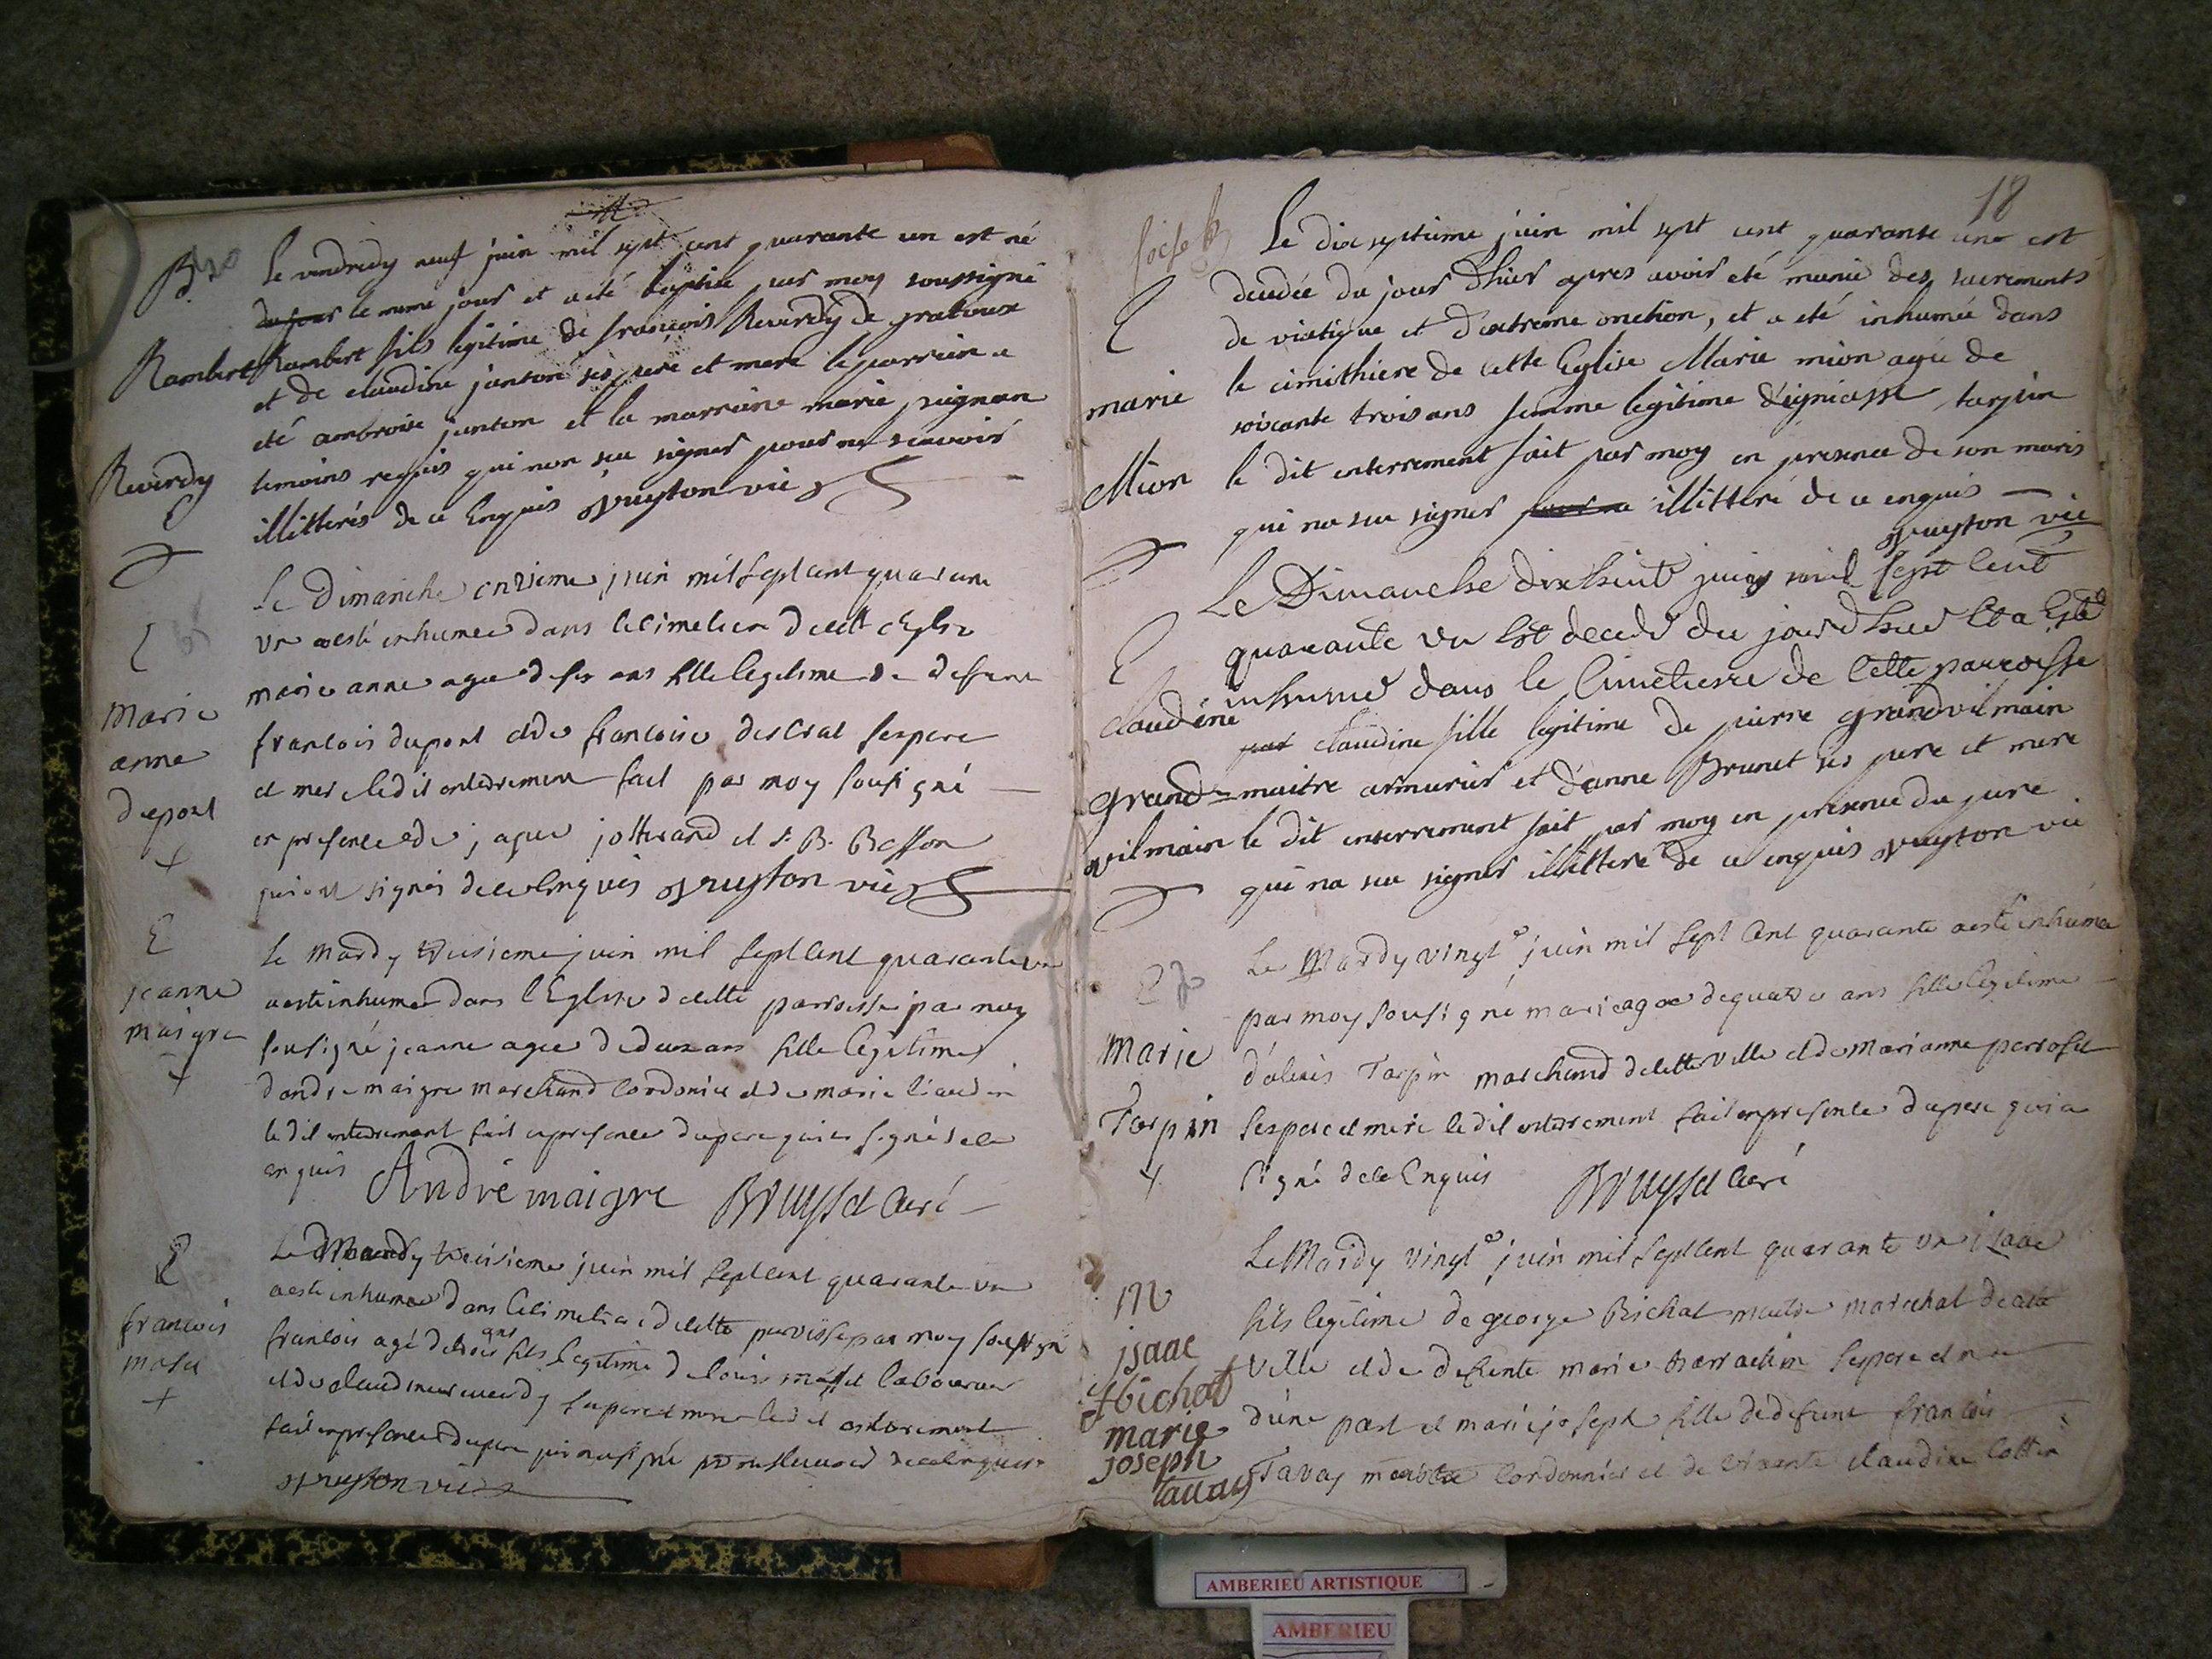 B 20
Rambert
Reverdy
Le vendredy neuf juin mil sept cent quarante un est né
du jour le meme jour et a eté baptisé par moy soussigné
Rambert fils legitime de francois Reverdy de gratoux
et de claudine janton ses pere et mere le parrain a
eté ambroise janton et la marraine marie pugnan
temoins requis qui non seu signer pour ne scavoir
illitterés de ce Enquis Bruyton vic
E
Marie
anne
dupont
Le Dimanche onzieme juin mil sept cent quarante
un a esté inhumee dans le cimetiere de cette Eglise
marie anne agee de six ans fille legitime de defunt
francois dupont et de francoise descrat ses pere
et mere le dit enterrement fait par moy sousigné
en presence de jaque jotterand et J. B. Besson
qui ont signés de ce enquis Bruyton vic
E
jeanne
maigre
Le Mardy treisieme juin mil sept cent quarante un
a esté inhumee dans l'Eglise de cette parroisse par moy
sousigné jeanne agee de deux ans fille legitime
d'andre maigre marchand cordonier et de marie
le dit enterrement fait en presence du pere qui a signé de ce
enquis
André maigre Bruyset Curé
E
francois
Le Mardy treisieme juin mil sept cent quarante un
a esté inhumé dans le cimetiere de cette parroisse par moy sousigné
francois agé de trois ans fils legitime de louis laboureur
et de claudine ses pere et mere le dit enterrement
fait en presence du pere qui n'a signé pour ne scavoir de ce enquis
Bruyton vic
18
E
marie
Mion
Le dix septieme juin mil sept cent quarante une est
decedée du jour d'hier apres avoir eté munie des sacrements
de viatique et d'extreme onction, et a eté inhumée dans
le cimithiere de cette Eglise Marie mion agée de
soixante trois ans femme legitime d'igniasse tarpin
le dit enterrement fait par moy en presence de son maris
qui na sceu signer pour ne illitteré de ce enquis
Bruyton vic
E
claudine
grand=
vilmain
Le Dimanche dixhuit juin mil sept cent
quarante un est decedé du jour d'hier Et a Esté
inhumé dans le Cimetiere de Cette parroisse
par claudine fille legitime de pierre grandvilmain
maitre armurier et d'anne Brunet ses pere et mere
le dit enterrement fait par moy en presence du pere
qui na sceu signer illitteré de ce enquis Bruyton vic
E
Marie
Tarpin
Le Mardy vingt e juin mil sept cent quarante a esté inhumée
par moy sousigné marie agee de quatre ans fille legitime
d'alexis Tarpin marchand de cette ville et de marianne perroset
ses pere et mere le dit enterrement fait en presence du pere qui a
signé de ce Enquis Bruyset Curé
M
isaac
Bichat
marie
joseph
tavay
Le Mardy vingt e juin mil sept cent quarante un isaac
fils legitime de george Bichat maitre marechal de cette
ville et de defunte marie ses pere et mere
d'une part et marie joseph fille de defunt francois
Tavay maitre cordonnier et de vivante claudine cottin
AMBERIEU ARTISTIQUE
AMBERIEU